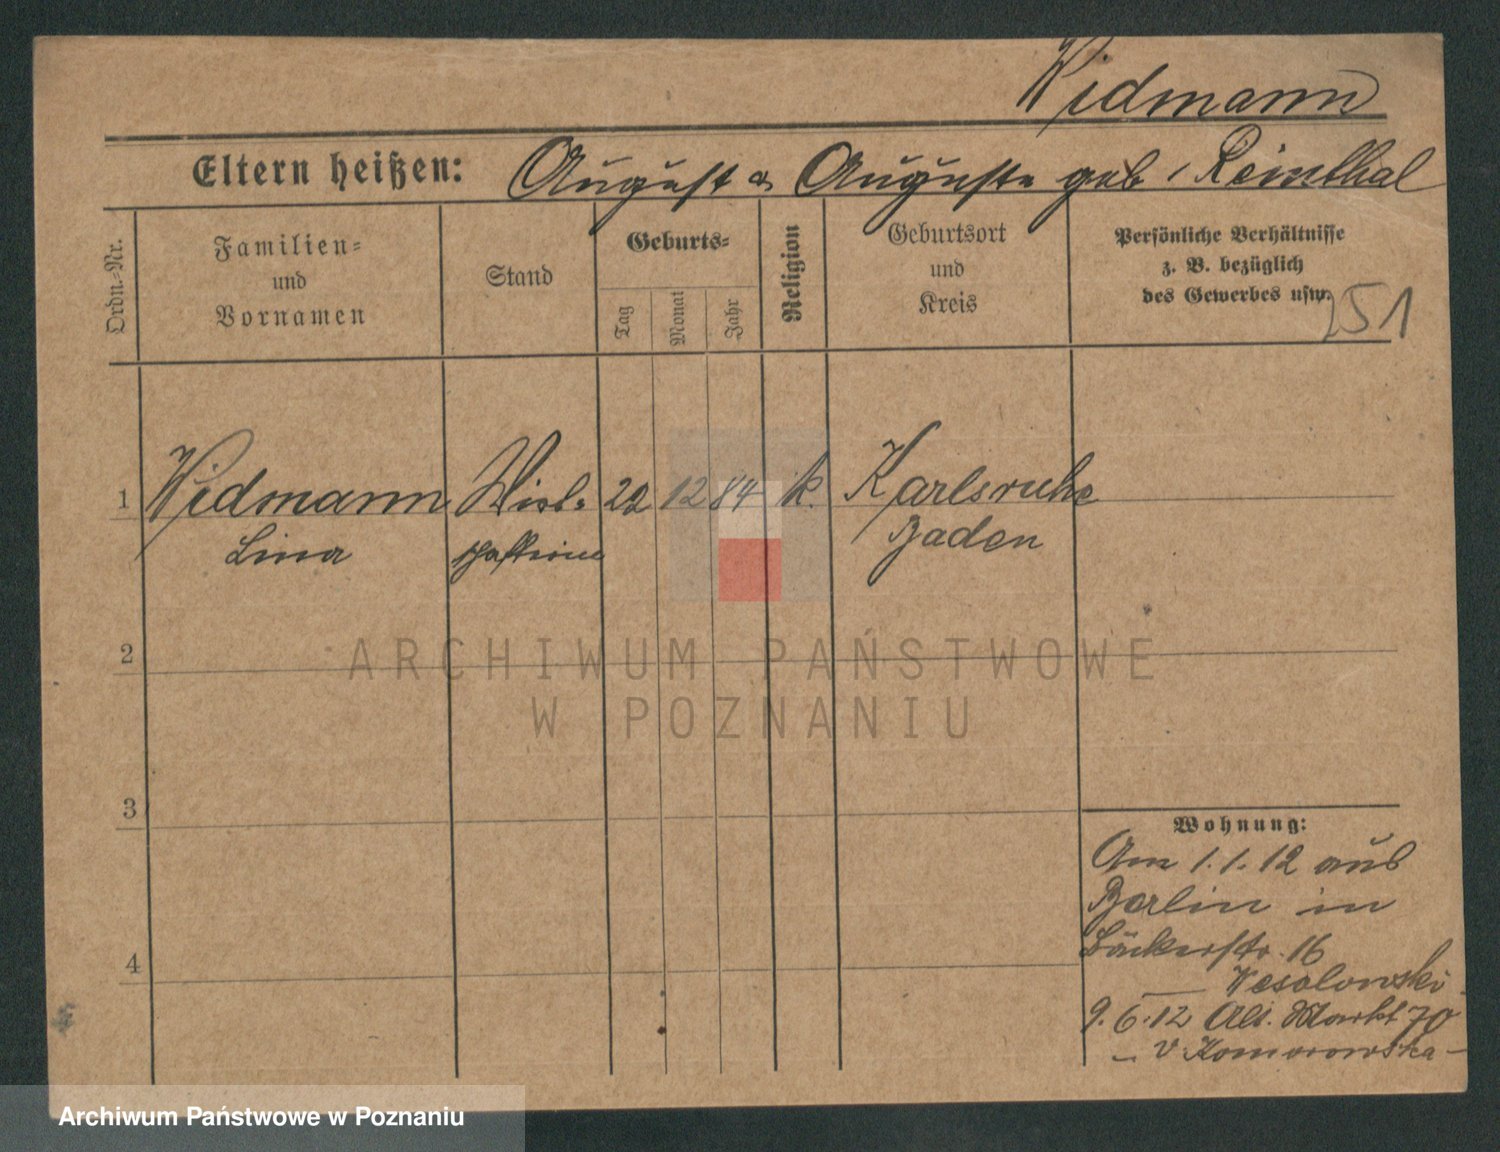 Widmann
Eltern heißen: August & Auguste geb. Reinthal
Ordn.-Nr.
Familien-
und
Vornamen
Stand
Geburts-
Tag
Monat
Jahr
Religion
Geburtsort
und
Kreis
Persönliche Verhältnisse
z. B. bezüglich
des Gewerbes usw.
251
1 Widmann Wirt- 22 12 84 k. Karlsruhe
Lina schafterin Baden
2
3
4
Wohnung:
Am 1.1.12 aus
Berlin in
Bäckerstr. 16
Wesolowski
9.6.12 Alt. Markt 70
v. Komorowska
ARCHIWUM PAŃSTWOWE
W POZNANIU
Archiwum Państwowe w Poznaniu